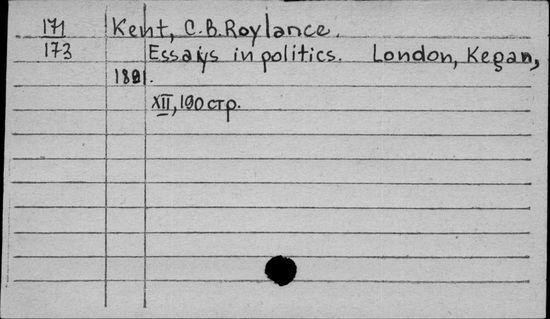 171
173
Kent, C.B.Roylance.
Essays in politics. London, Kegan,
1891.
XII, 190 стр.